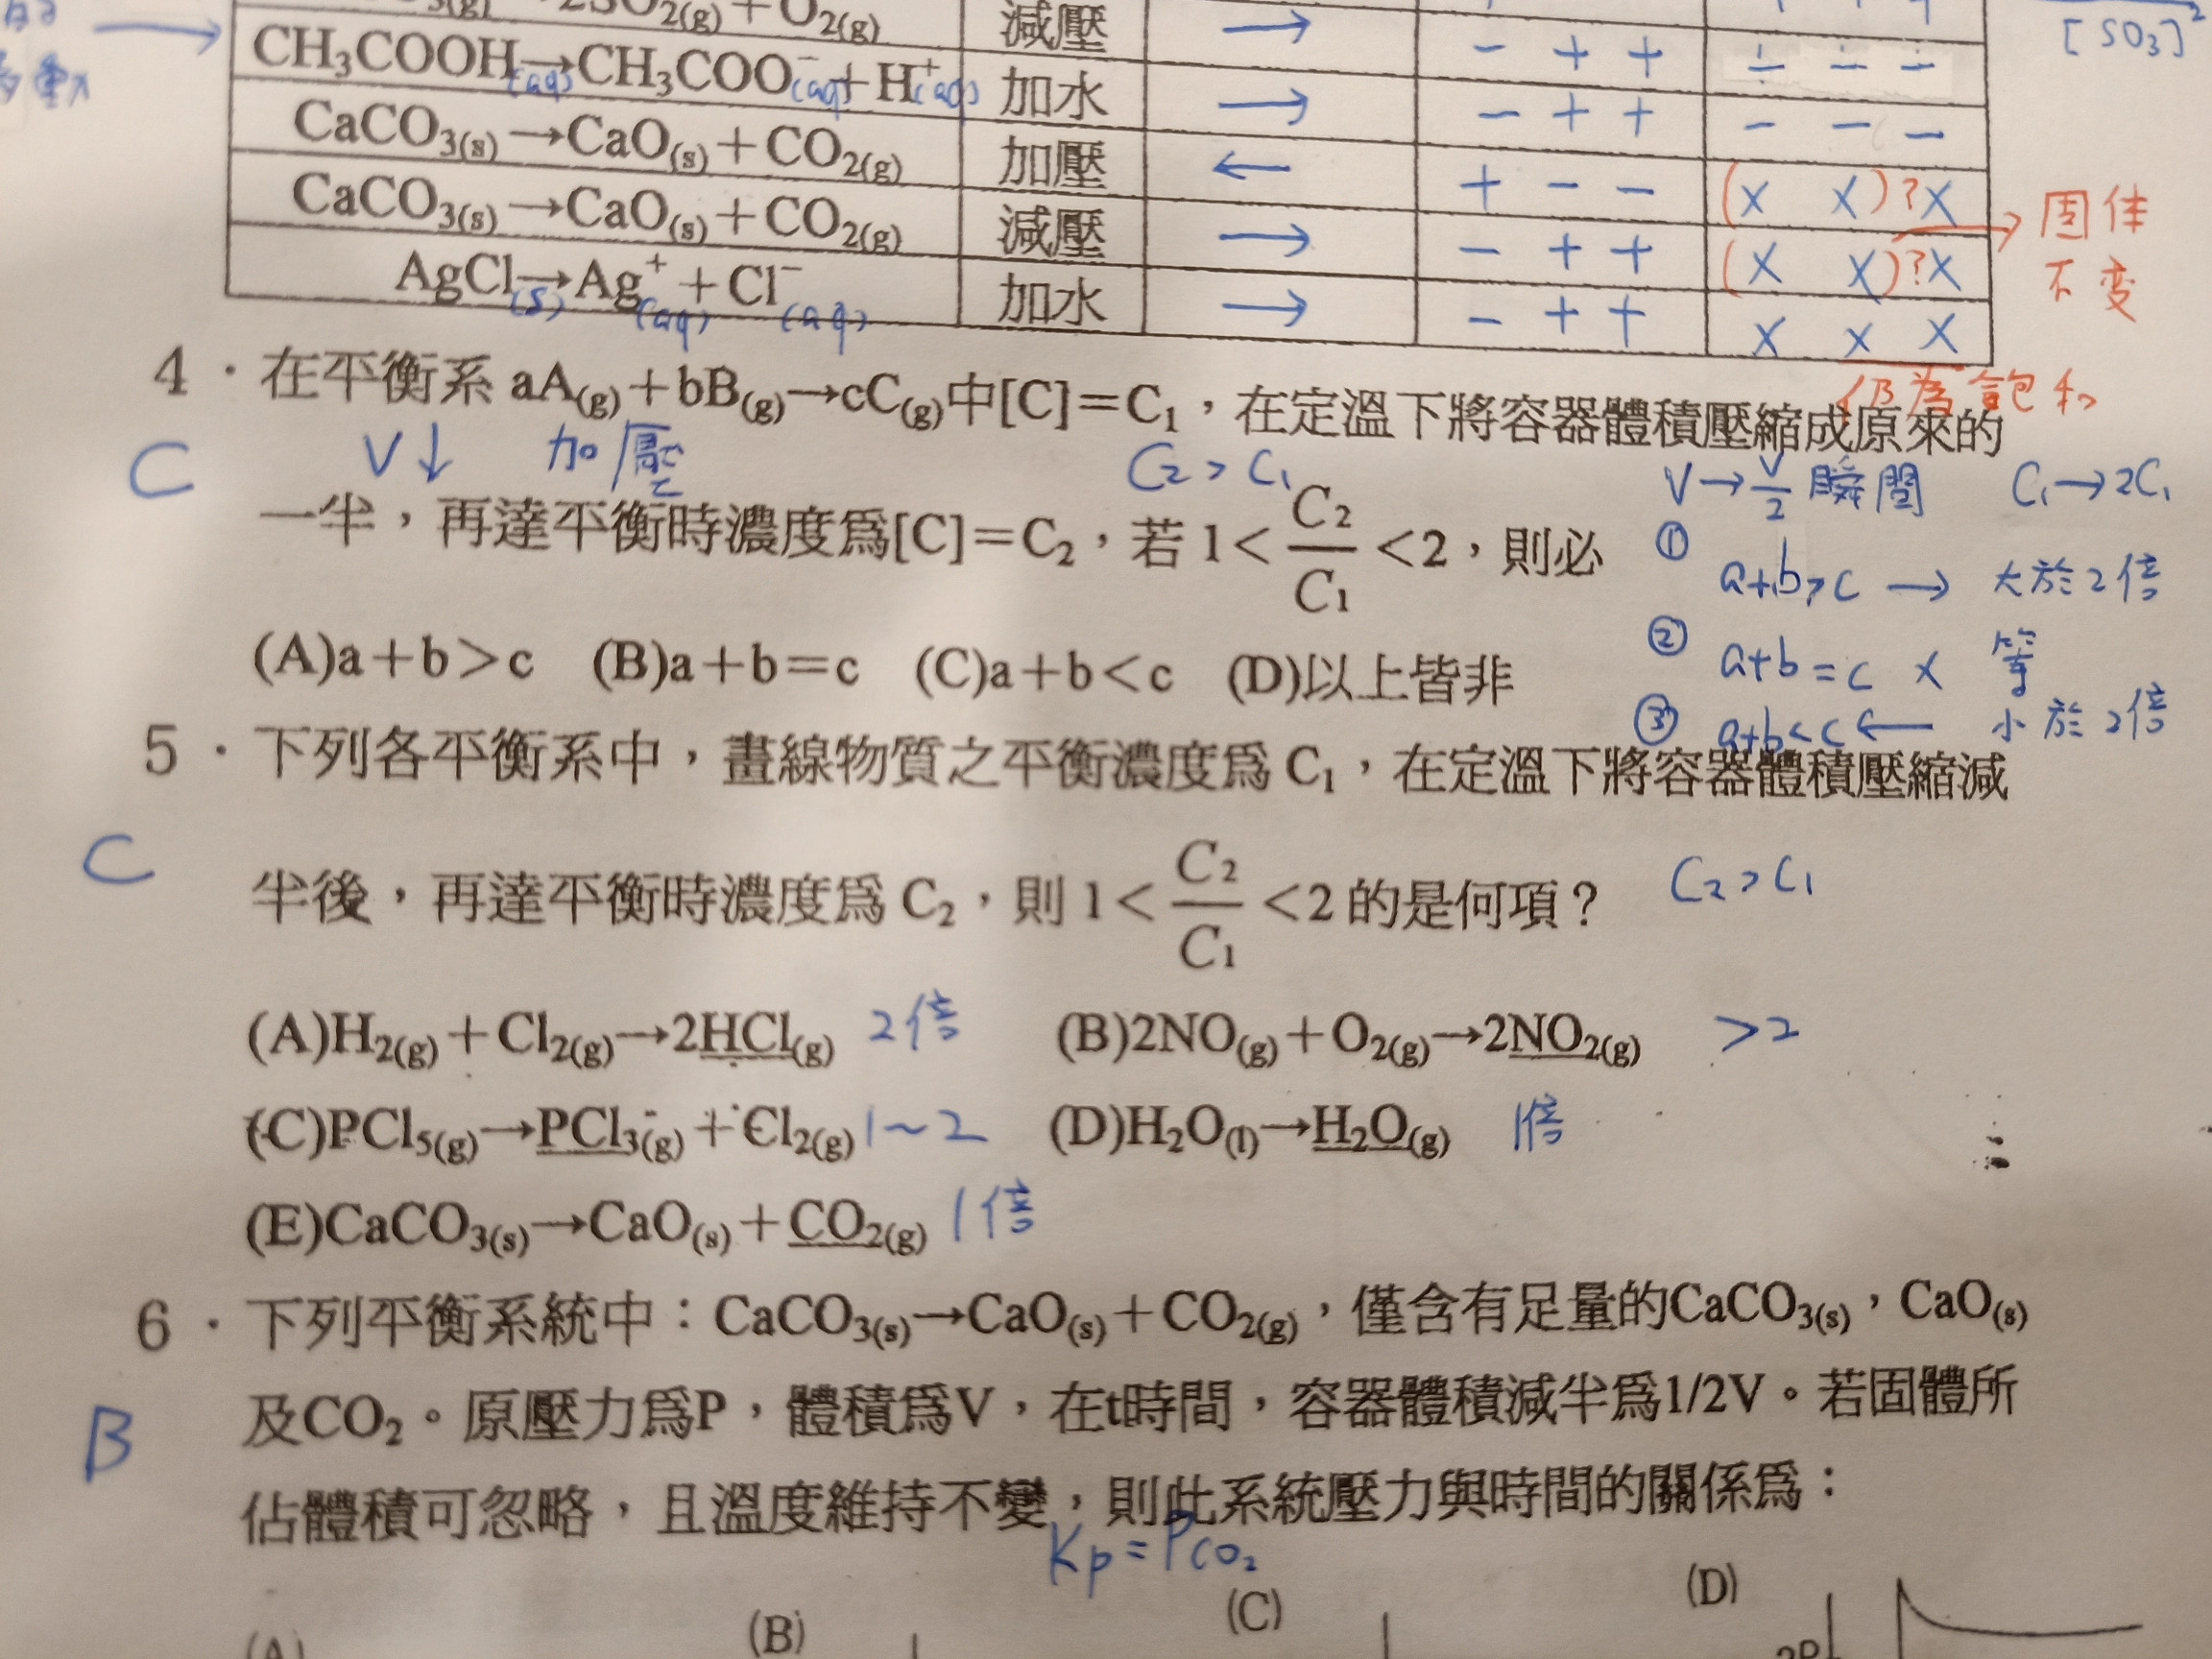 2SO₂(g)+O₂(g) 減壓 → − + + − − − [SO₃]²
CH₃COOH(aq)→CH₃COO⁻(aq)+H⁺(aq) 加水 → − + + − − −
CaCO₃(s)→CaO(s)+CO₂(g) 加壓 ← + − − (× ×)?× → 固体
CaCO₃(s)→CaO(s)+CO₂(g) 減壓 → − + + (× ×)?× 不变
AgCl(s)→Ag⁺(aq)+Cl⁻(aq) 加水 → − + + × × ×
仍為飽和
4.在平衡系 aA(g)+bB(g)→cC(g)中[C]=C₁,在定溫下將容器體積壓縮成原來的
C V↓ 加壓 C₂>C₁ V→V/2 瞬間 C₁→2C₁
一半,再達平衡時濃度爲[C]=C₂,若 1< C₂/C₁ <2,則必
① a+b>c → 大於2倍
② a+b=c × 等
(A)a+b>c (B)a+b=c (C)a+b<c (D)以上皆非
③ a+b<c ← 小於2倍
5.下列各平衡系中,畫線物質之平衡濃度爲 C₁,在定溫下將容器體積壓縮減
C 半後,再達平衡時濃度爲 C₂,則 1< C₂/C₁ <2 的是何項? C₂>C₁
(A)H₂(g)+Cl₂(g)→2HCl(g) 2倍 (B)2NO(g)+O₂(g)→2NO₂(g) >2
(C)PCl₅(g)→PCl₃(g)+Cl₂(g) 1~2 (D)H₂O(l)→H₂O(g) 1倍
(E)CaCO₃(s)→CaO(s)+CO₂(g) 1倍
6.下列平衡系統中:CaCO₃(s)→CaO(s)+CO₂(g),僅含有足量的CaCO₃(s),CaO(s)
B 及CO₂。原壓力爲P,體積爲V,在t時間,容器體積減半爲1/2V。若固體所
佔體積可忽略,且溫度維持不變,則此系統壓力與時間的關係爲:
Kp=Pco₂
(A) (B) (C) (D)
2P